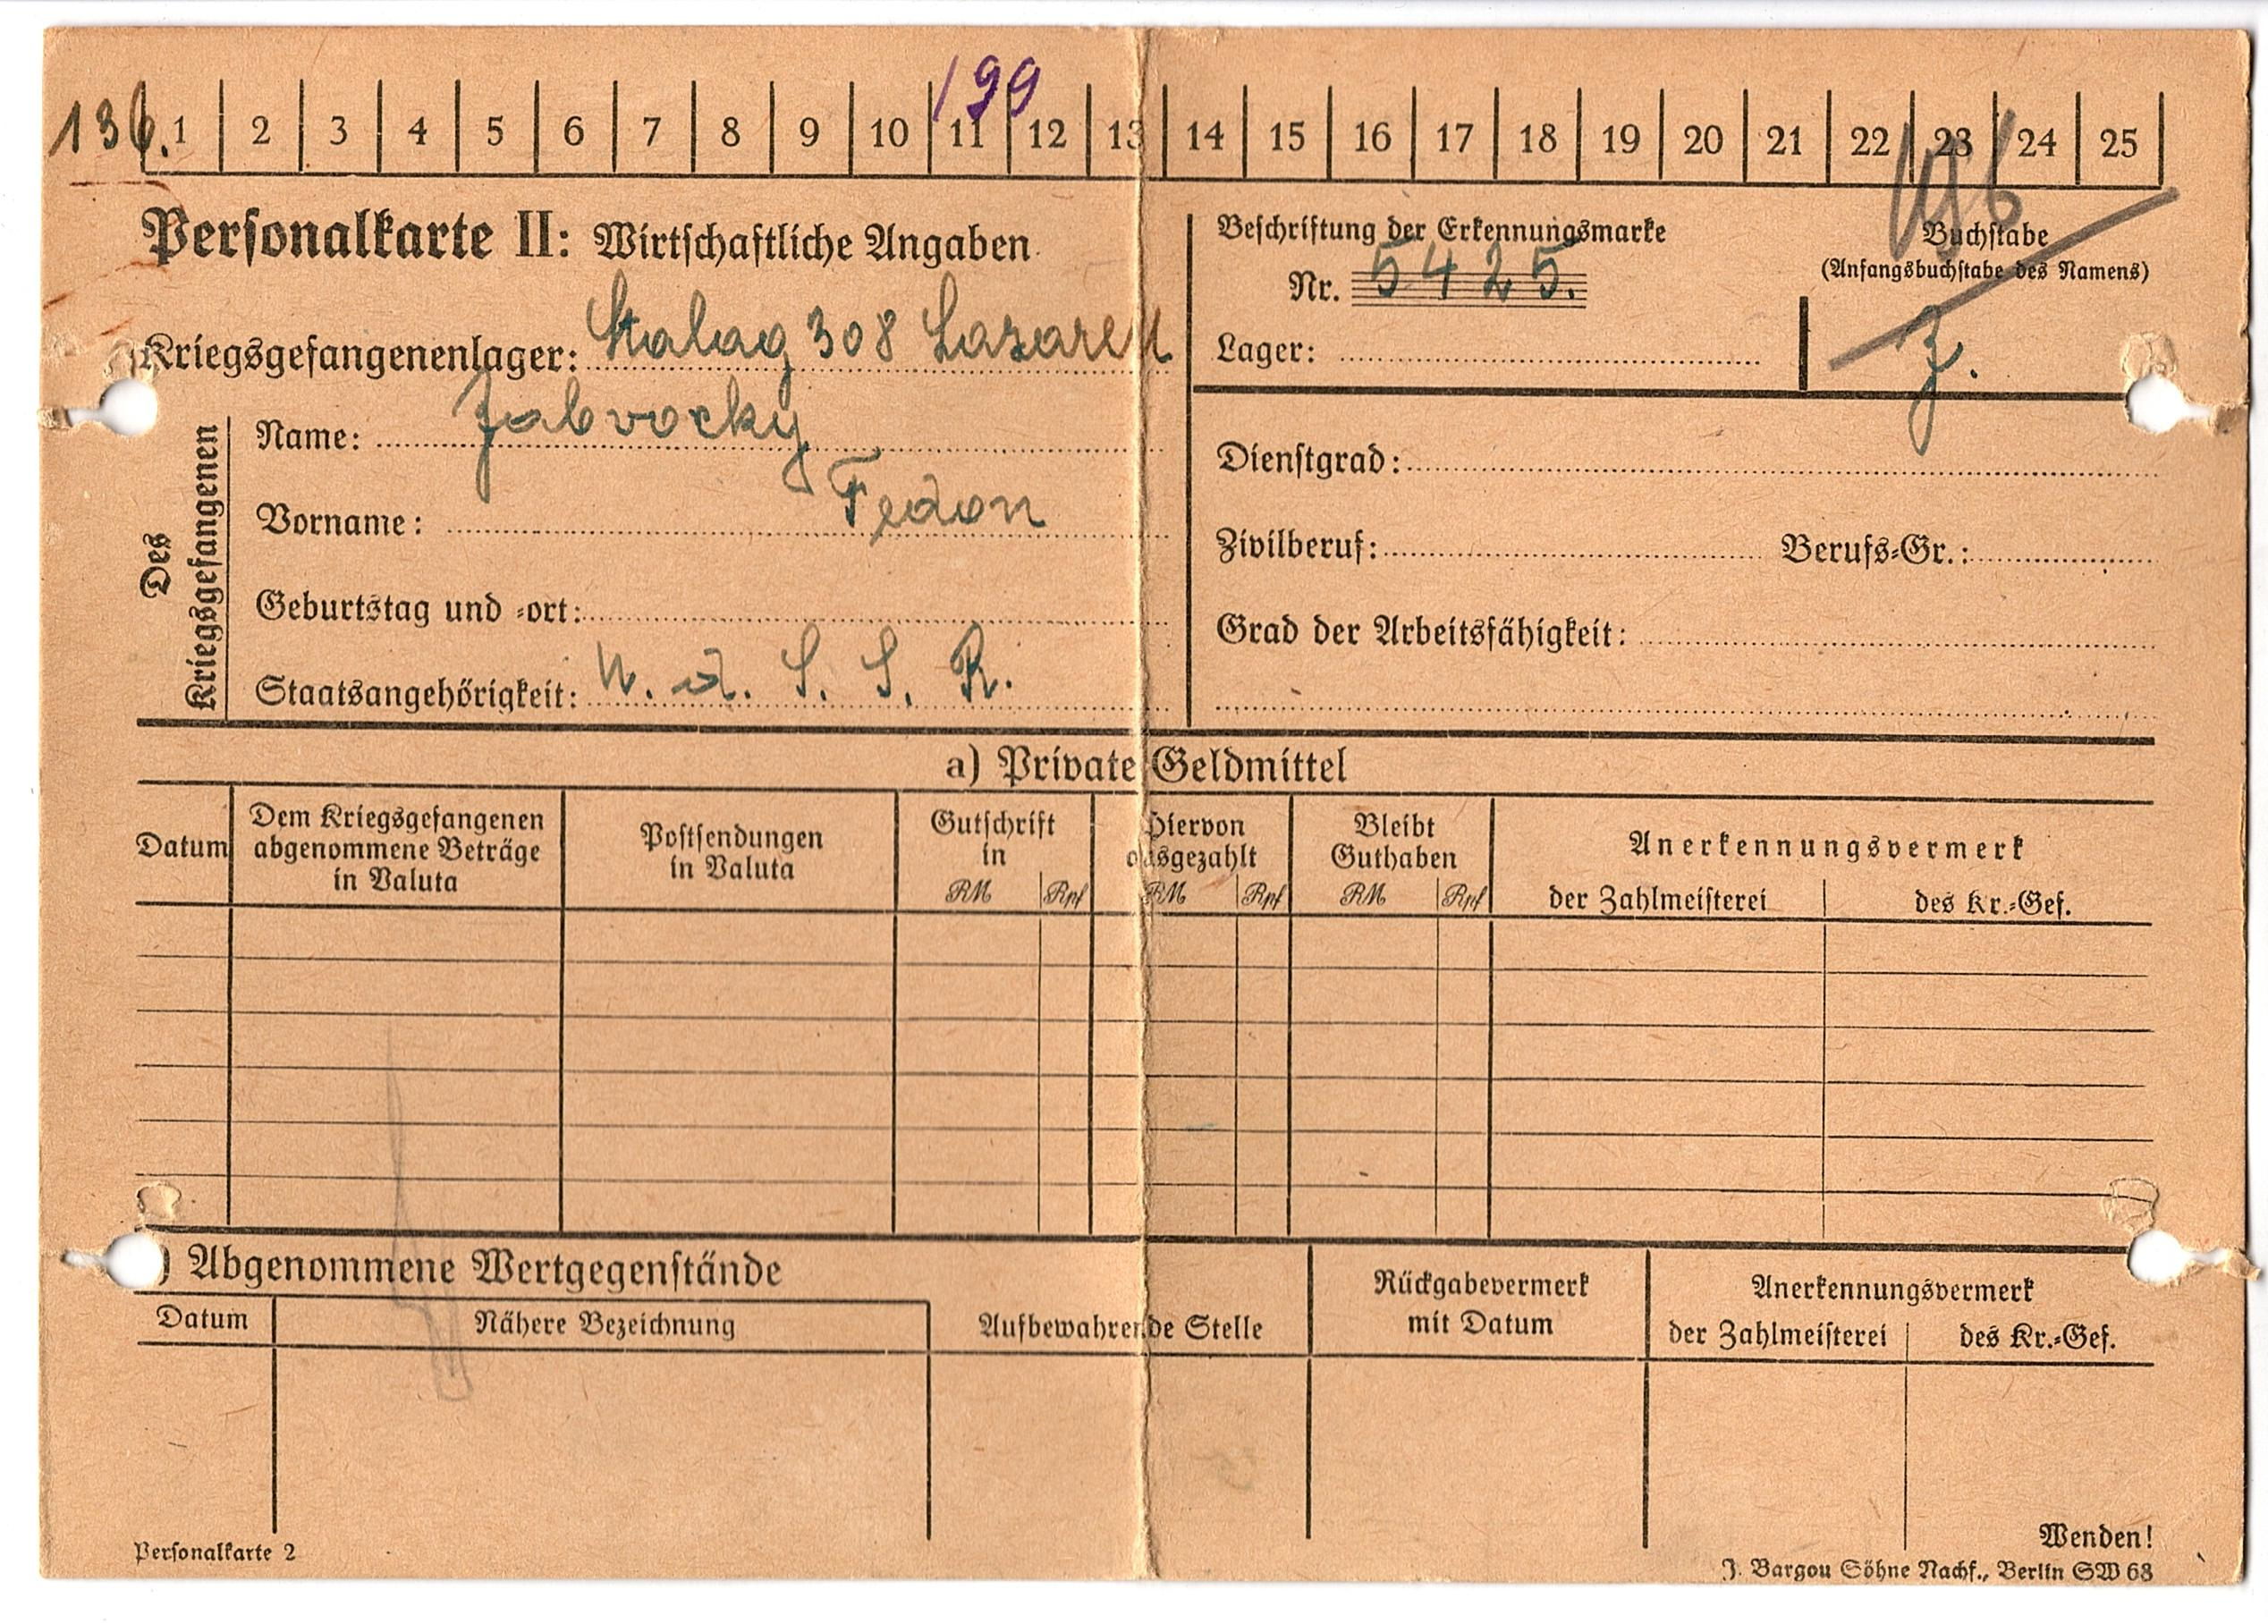 199
136.
1 2 3 4 5 6 7 8 9 10 11 12 13 14 15 16 17 18 19 20 21 22 23 24 25
Personalkarte II: Wirtschaftliche Angaben
Kriegsgefangenenlager: Stalag 308 Lazarett
Des Kriegsgefangenen
Name: Zabvocky
Vorname: Fedor
Geburtstag und -ort:
Staatsangehörigkeit: U. d. S. S. R.
Beschriftung der Erkennungsmarke
Nr. 5425.
Lager:
Buchstabe
(Anfangsbuchstabe des Namens)
Z.
Dienstgrad:
Zivilberuf: Berufs-Gr.:
Grad der Arbeitsfähigkeit:
a) Private Geldmittel
Datum
Dem Kriegsgefangenen
abgenommene Beträge
in Valuta
Postsendungen
in Valuta
Gutschrift
in
RM Rpf
Hiervon
ausgezahlt
RM Rpf
Bleibt
Guthaben
RM Rpf
Anerkennungsvermerk
der Zahlmeisterei des Kr.-Gef.
) Abgenommene Wertgegenstände
Datum
Nähere Bezeichnung
Aufbewahrende Stelle
Rückgabevermerk
mit Datum
Anerkennungsvermerk
der Zahlmeisterei des Kr.-Gef.
Wenden!
Personalkarte 2
J. Bargou Söhne Nachf., Berlin SW 68